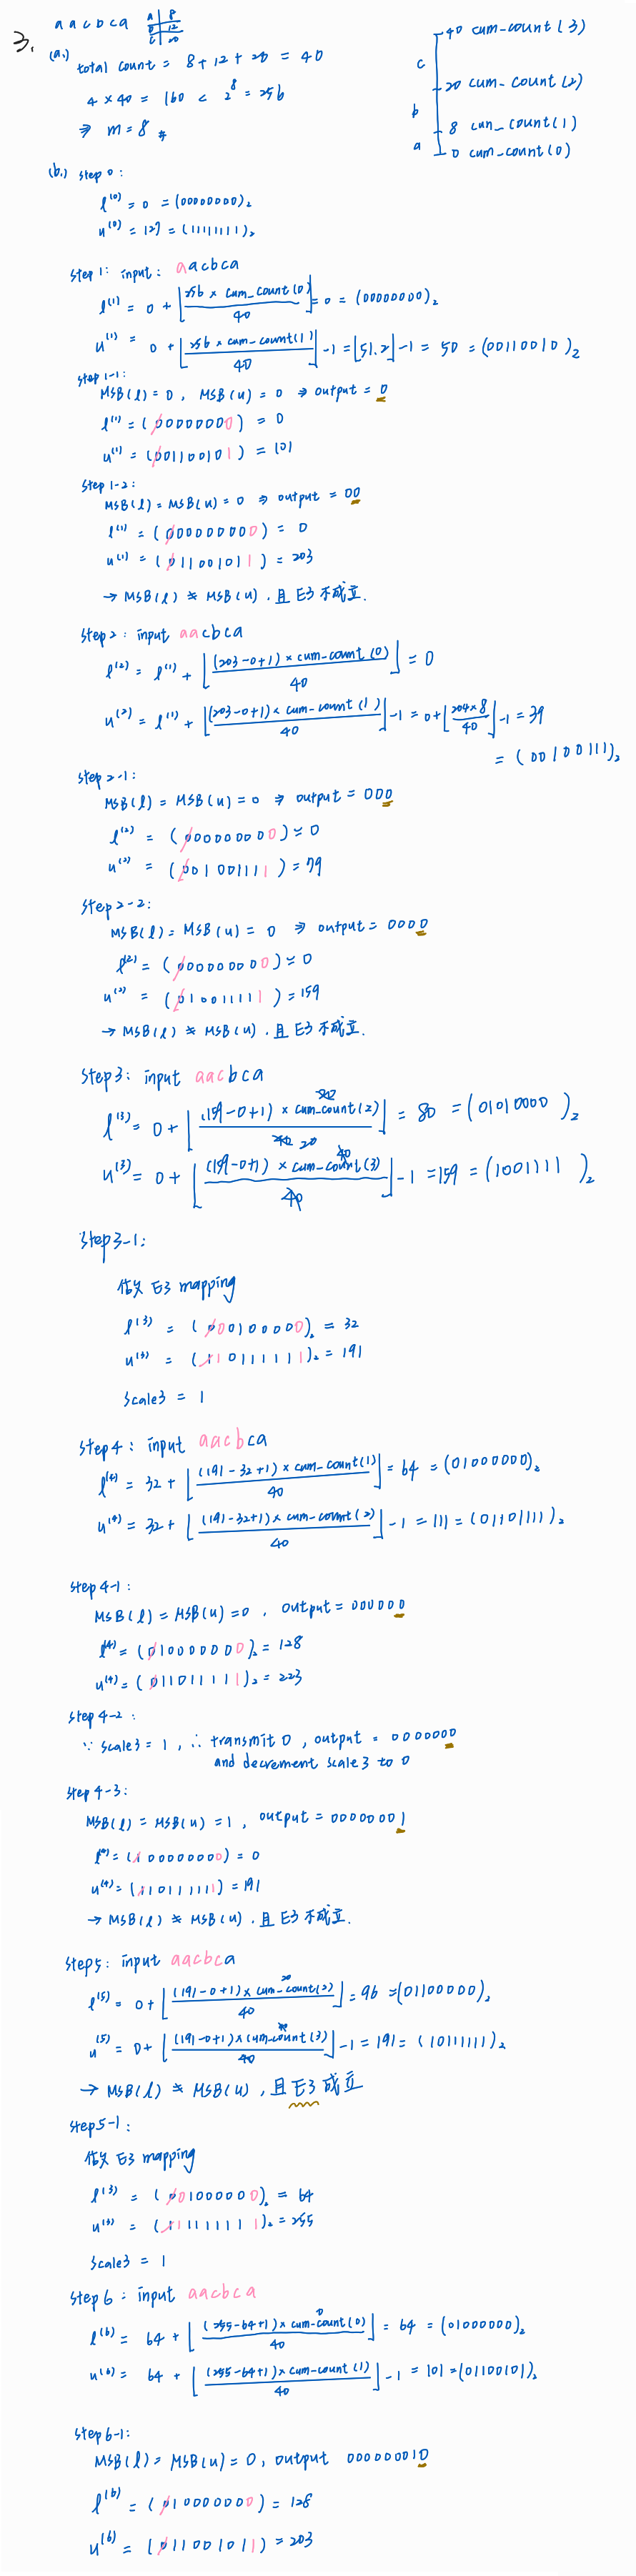 3. aacbca
a | 8
b | 12
c | 20
(a.) total count = 8 + 12 + 20 = 40
4 × 40 = 160 < 2^8 = 256
⇒ m = 8 #
40 cum-count (3)
c
20 cum-count (2)
b
8 cum_count (1)
a
0 cum-count (0)
(b.) step 0:
l^(0) = 0 = (00000000)₂
u^(0) = 127 = (11111111)₂
Step 1: input: aacbca
l^(1) = 0 + ⌊256 × cum_count(0) / 40⌋ = 0 = (00000000)₂
u^(1) = 0 + ⌊256 × cum-count(1) / 40⌋ - 1 = ⌊51.2⌋ - 1 = 50 = (00110010)₂
Step 1-1:
MSB(l) = 0, MSB(u) = 0 ⇒ output = 0
l^(1) = (000000000) = 0
u^(1) = (001100101) = 101
Step 1-2:
MSB(l) = MSB(u) = 0 ⇒ output = 00
l^(1) = (000000000) = 0
u^(1) = (011001011) = 203
→ MSB(l) ≠ MSB(u), 且 E3 不成立.
Step 2: input aacbca
l^(2) = l^(1) + ⌊(203-0+1) × cum-count(0) / 40⌋ = 0
u^(2) = l^(1) + ⌊(203-0+1) × cum-count(1) / 40⌋ - 1 = 0 + ⌊204×8 / 40⌋ - 1 = 39
= (00100111)₂
Step 2-1:
MSB(l) = MSB(u) = 0 ⇒ output = 000
l^(2) = (000000000) = 0
u^(2) = (001001111) = 79
Step 2-2:
MSB(l) = MSB(u) = 0 ⇒ output = 0000
l^(2) = (000000000) = 0
u^(2) = (010011111) = 159
→ MSB(l) ≠ MSB(u), 且 E3 不成立.
Step 3: input aacbca
l^(3) = 0 + ⌊(159-0+1) × cum-count(2) / 40⌋ = 80 = (01010000)₂
u^(3) = 0 + ⌊(159-0+1) × cum-count(3) / 40⌋ - 1 = 159 = (1001111)₂
Step 3-1:
做 E3 mapping
l^(3) = (000100000)₂ = 32
u^(3) = (110111111)₂ = 191
Scale3 = 1
Step 4: input aacbca
l^(4) = 32 + ⌊(191-32+1) × cum-count(1) / 40⌋ = 64 = (01000000)₂
u^(4) = 32 + ⌊(191-32+1) × cum-count(2) / 40⌋ - 1 = 111 = (01101111)₂
Step 4-1:
MSB(l) = MSB(u) = 0, output = 000000
l^(4) = (010000000)₂ = 128
u^(4) = (011011111)₂ = 223
Step 4-2:
∵ scale3 = 1, ∴ transmit 0, output = 0000000
and decrement scale3 to 0
Step 4-3:
MSB(l) = MSB(u) = 1, output = 00000001
l^(4) = (100000000) = 0
u^(4) = (110111111) = 191
→ MSB(l) ≠ MSB(u), 且 E3 不成立.
Step 5: input aacbca
l^(5) = 0 + ⌊(191-0+1) × cum-count(2) / 40⌋ = 96 = (01100000)₂
u^(5) = 0 + ⌊(191-0+1) × cum-count(3) / 40⌋ - 1 = 191 = (10111111)₂
→ MSB(l) ≠ MSB(u), 且 E3 成立
Step 5-1:
做 E3 mapping
l^(3) = (001000000)₂ = 64
u^(3) = (111111111)₂ = 255
Scale3 = 1
Step 6: input aacbca
l^(6) = 64 + ⌊(255-64+1) × cum-count(0) / 40⌋ = 64 = (01000000)₂
u^(6) = 64 + ⌊(255-64+1) × cum-count(1) / 40⌋ - 1 = 101 = (01100101)₂
Step 6-1:
MSB(l) = MSB(u) = 0, output 000000010
l^(6) = (010000000) = 128
u^(6) = (011001011) = 203